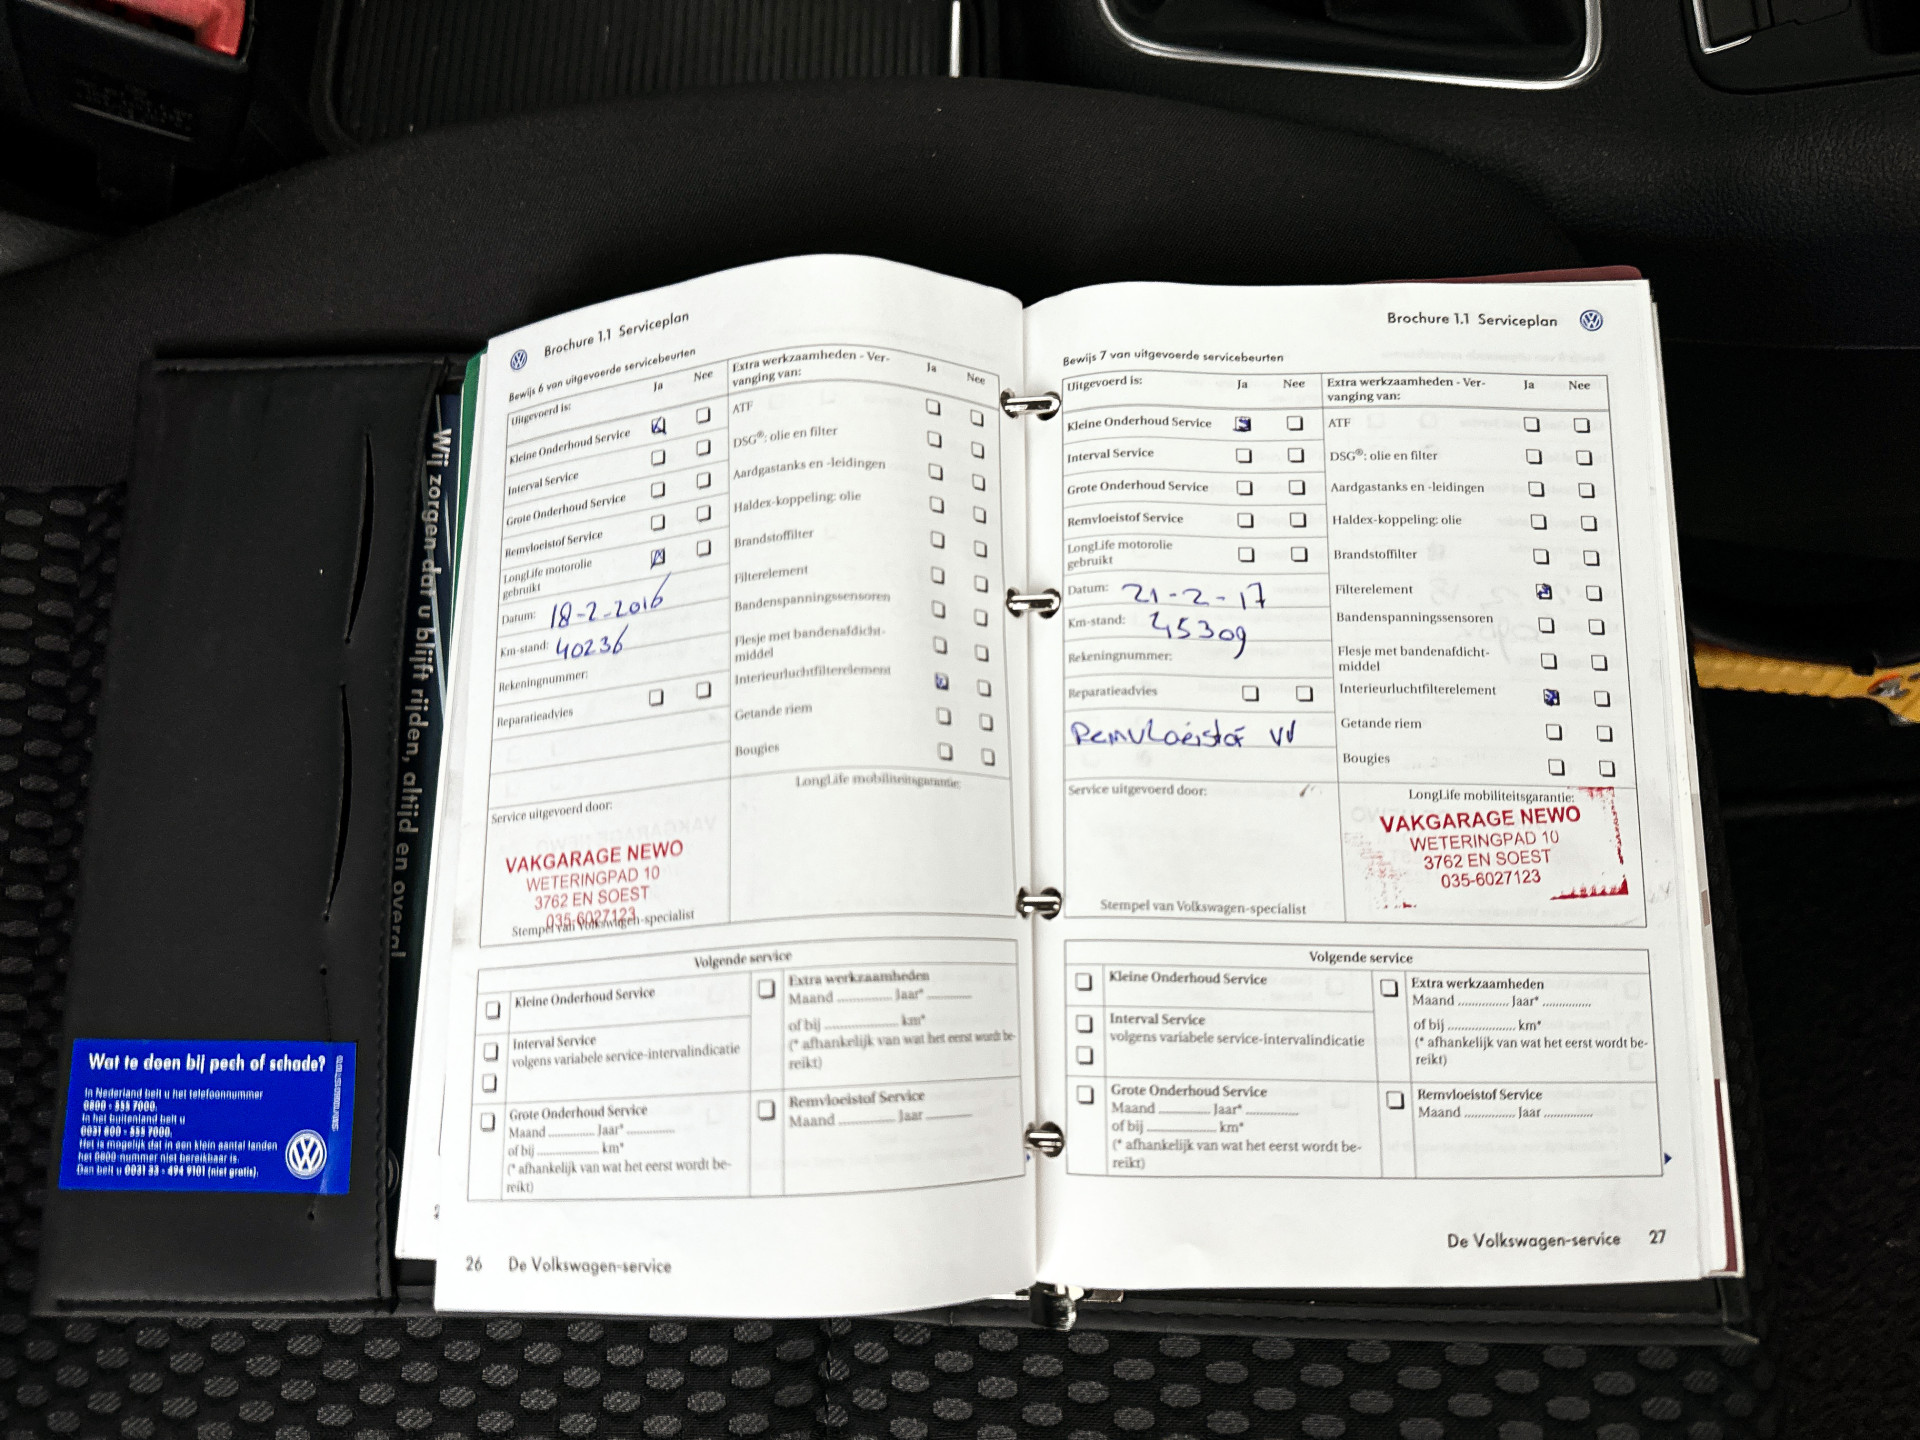 Wij zorgen dat u blijft rijden, altijd en overal
Wat te doen bij pech of schade?
In Nederland belt u het telefoonnummer
0800 - 555 7000.
In het buitenland belt u
0031 800 - 555 7000.
Het is mogelijk dat in een klein aantal landen
het 0800-nummer niet bereikbaar is.
Dan belt u 0031 33 - 494 9101 (niet gratis).
Brochure 1.1 Serviceplan
Bewijs 6 van uitgevoerde servicebeurten
Uitgevoerd is: Ja Nee
Kleine Onderhoud Service
Interval Service
Grote Onderhoud Service
Remvloeistof Service
LongLife motorolie
gebruikt
Datum: 18-2-2016
Km-stand: 40236
Rekeningnummer:
Reparatieadvies
Service uitgevoerd door:
VAKGARAGE NEWO
WETERINGPAD 10
3762 EN SOEST
035-6027123
Stempel van Volkswagen-specialist
Extra werkzaamheden - Ver-
vanging van: Ja Nee
ATF
DSG®: olie en filter
Aardgastanks en -leidingen
Haldex-koppeling: olie
Brandstoffilter
Filterelement
Bandenspanningssensoren
Flesje met bandenafdicht-
middel
Interieurluchtfilterelement
Getande riem
Bougies
LongLife mobiliteitsgarantie:
Volgende service
Kleine Onderhoud Service
Interval Service
volgens variabele service-intervalindicatie
Grote Onderhoud Service
Maand ............ Jaar* ............
of bij ............ km*
(* afhankelijk van wat het eerst wordt be-
reikt)
Extra werkzaamheden
Maand ............ Jaar* ............
of bij ............ km*
(* afhankelijk van wat het eerst wordt be-
reikt)
Remvloeistof Service
Maand ............ Jaar ............
26 De Volkswagen-service
Brochure 1.1 Serviceplan
Bewijs 7 van uitgevoerde servicebeurten
Uitgevoerd is: Ja Nee
Kleine Onderhoud Service
Interval Service
Grote Onderhoud Service
Remvloeistof Service
LongLife motorolie
gebruikt
Datum: 21-2-17
Km-stand: 45309
Rekeningnummer:
Reparatieadvies
Remvloeistof VV
Service uitgevoerd door:
Stempel van Volkswagen-specialist
Extra werkzaamheden - Ver-
vanging van: Ja Nee
ATF
DSG®: olie en filter
Aardgastanks en -leidingen
Haldex-koppeling: olie
Brandstoffilter
Filterelement
Bandenspanningssensoren
Flesje met bandenafdicht-
middel
Interieurluchtfilterelement
Getande riem
Bougies
LongLife mobiliteitsgarantie:
VAKGARAGE NEWO
WETERINGPAD 10
3762 EN SOEST
035-6027123
Volgende service
Kleine Onderhoud Service
Interval Service
volgens variabele service-intervalindicatie
Grote Onderhoud Service
Maand ............ Jaar* ............
of bij ............ km*
(* afhankelijk van wat het eerst wordt be-
reikt)
Extra werkzaamheden
Maand ............ Jaar* ............
of bij ............ km*
(* afhankelijk van wat het eerst wordt be-
reikt)
Remvloeistof Service
Maand ............ Jaar ............
De Volkswagen-service 27